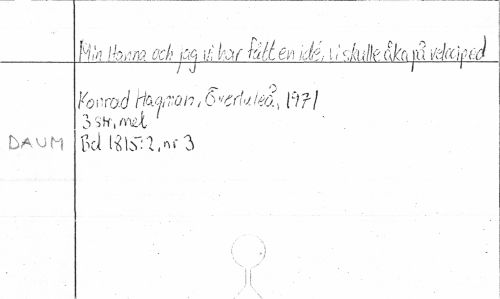 Min Hanna och jag vi har fått en idé, vi skulle åka på velociped
Konrad Hagman, Överluleå, 1971
3 str, mel
DAUM Bd 1815:2, nr 3